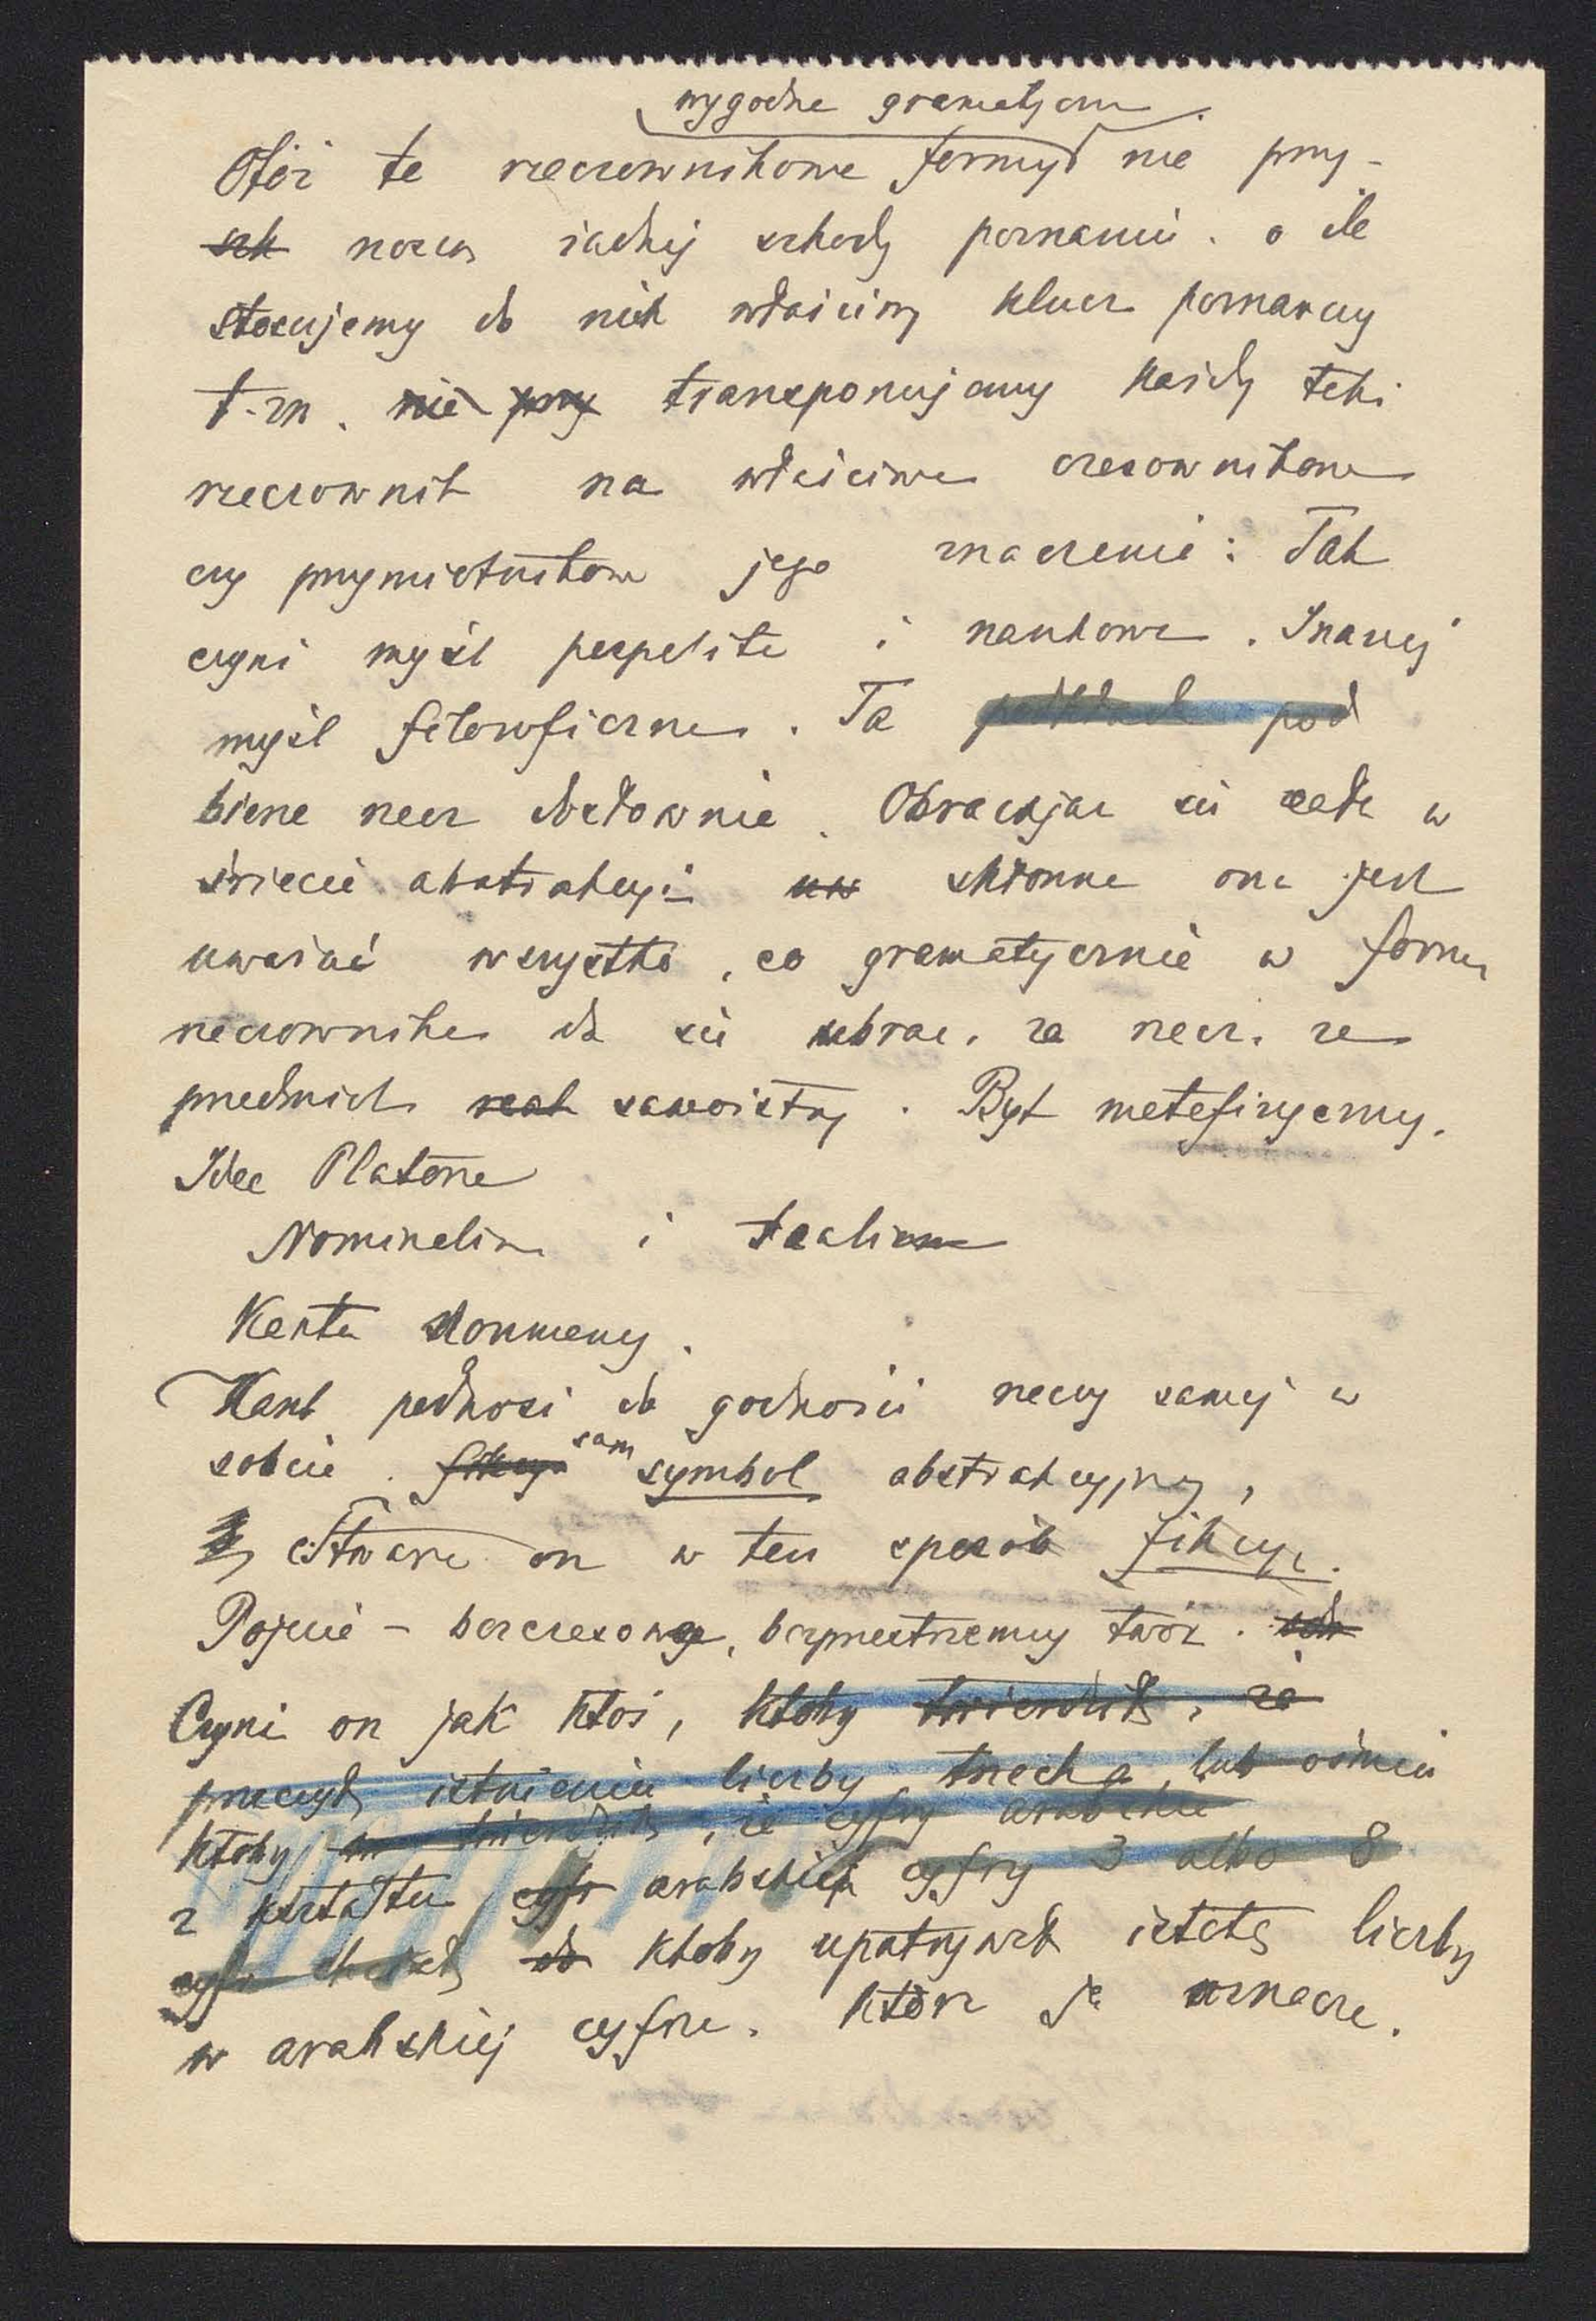 wygodne gramatyczn
Otóż te rzeczownikowe formy nie przy-
szk noszą żadnej szkody poznaniu, o ile
stosujemy do nich właściwy klucz poznawczy
t.zn. nie przy transponujemy każdy taki
rzeczownik na właściwe czasownikowe
czy przymiotnikowe jego znaczenie: Tak
czyni myśl pospolita i naukowa. Inaczej
myśl filozoficzna. Ta pod
bierze rzecz dosłownie. Obracając się cała w
świecie abstrakcyi skłonna ona jest
uważać wszystko, co gramatycznie w formę
rzeczownika da się ubrać, za rzecz, za
przedmiot real samoistny. Byt metafizyczny.
Idee Platona
Nominalizm i realizm
Kanta Noumeny.
Kant podnosi do godności rzeczy samej w
sobie. fikcyę sam symbol abstrakcyjny,
Stwarza on w ten sposób fikcyę.
Pojęcie – bezczasowy, bezprzestrzenny twór.
Czyni on jak ktoś, ktoby twierdził, że
przeczył istnieniu liczby trzech a lub ośmiu
ktoby twierdził, że cyfry arabskie
z kształtu cyfr arabskiej cyfry 3 albo 8
chciał do ktoby upatrywał istotę liczby
w arabskiej cyfrze, która ją oznacza.